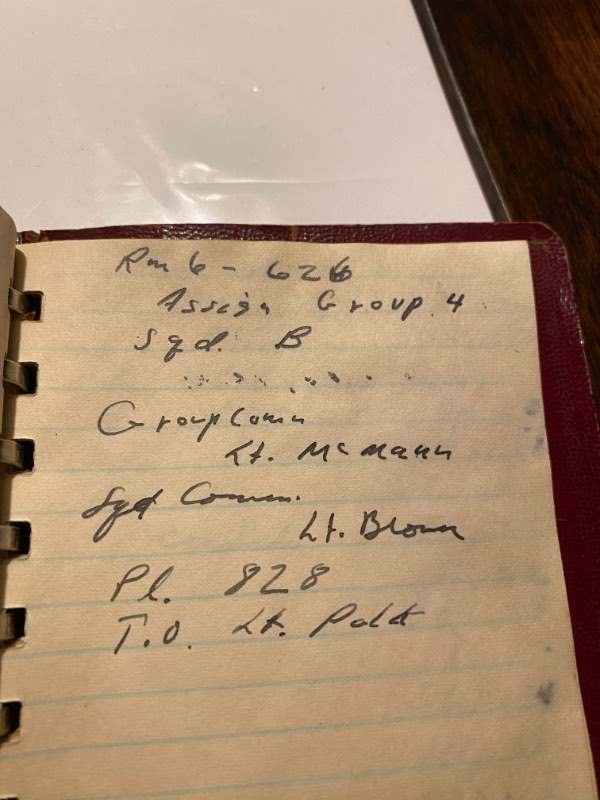 Rm 6 - 626
Assign Group 4
Sqd. B
Group Comm
Lt. McMann
Sqd Comm.
Lt. Brown
Pl. 828
T.O. Lt.